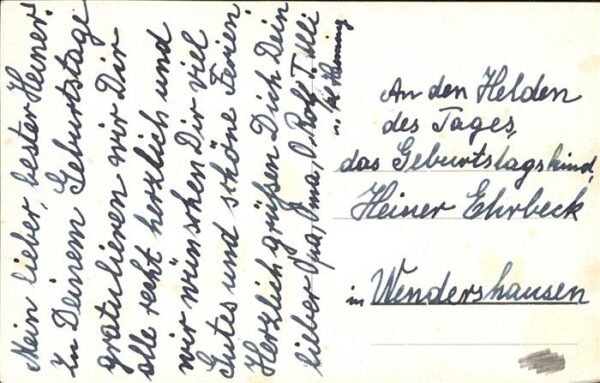 Mein lieber, bester Heiner!
In Deinem Geburtstage
gratulieren wir Dir
alle recht herzlich und
wir wünschen Dir viel
Gutes und schöne Ferien.
Herzlich grüßen Dich Dein
lieber Opa, Oma, O. Rolf, T. Illi
u. Henning
An den Helden
des Tages,
das Geburtstagskind,
Heiner Ehrbeck
in Wendershausen